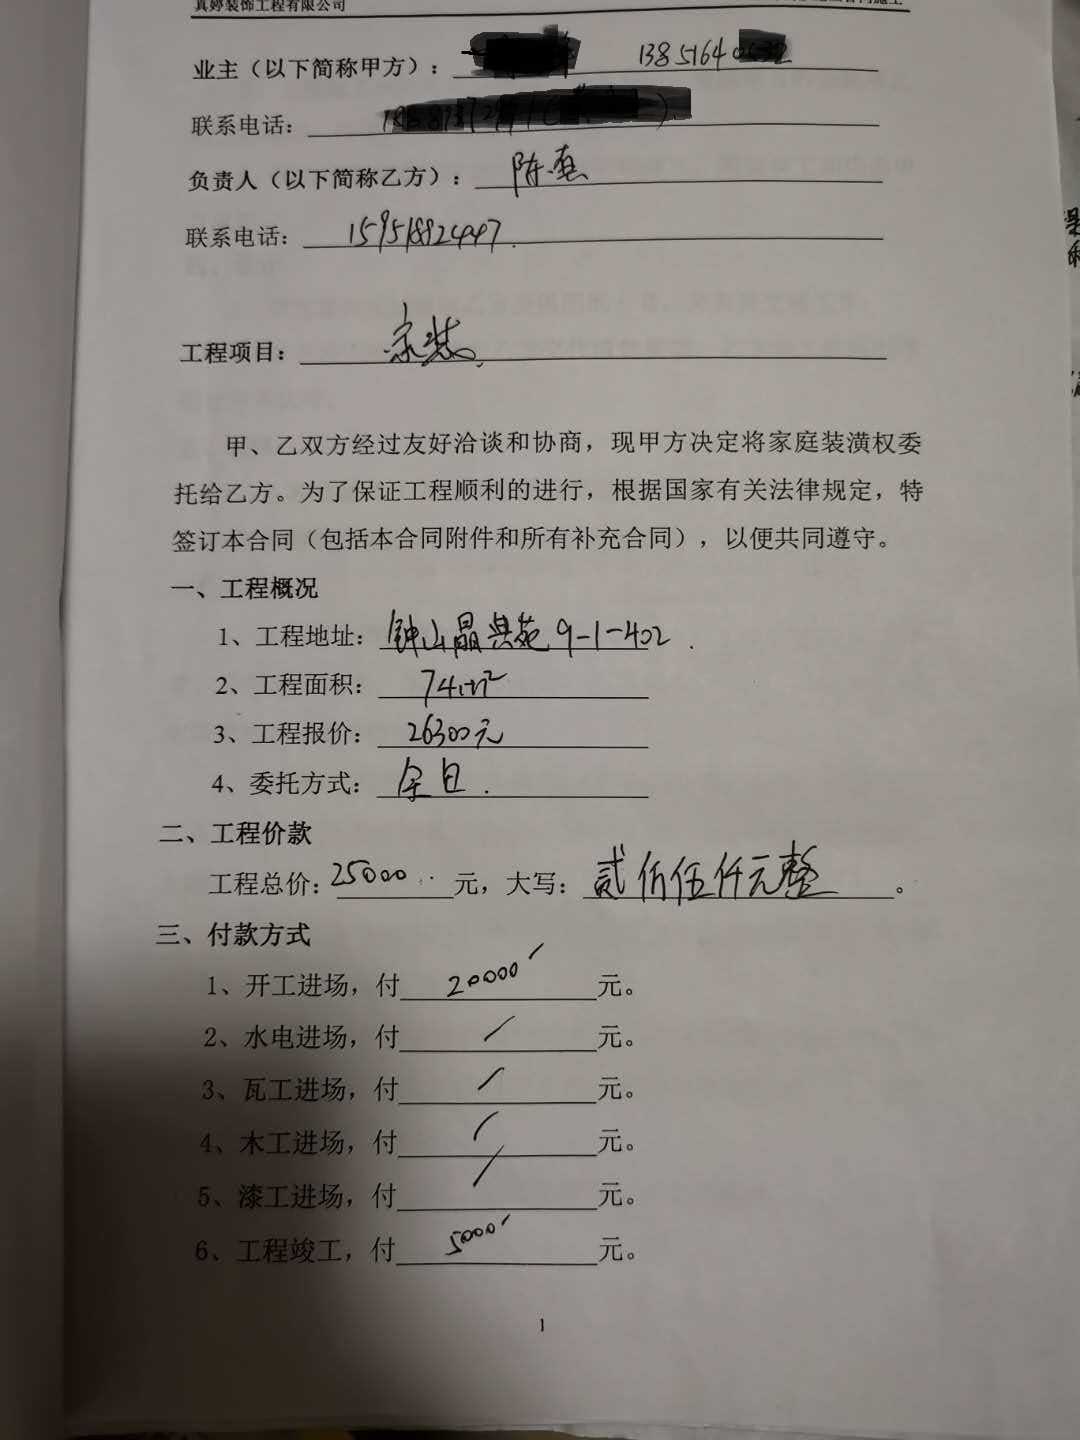 真婷装饰工程有限公司
业主（以下简称甲方）： 1385164
联系电话：
负责人（以下简称乙方）： 陈
联系电话： 15951892447.
工程项目： 家装
甲、乙双方经过友好洽谈和协商，现甲方决定将家庭装潢权委
托给乙方。为了保证工程顺利的进行，根据国家有关法律规定，特
签订本合同（包括本合同附件和所有补充合同），以便共同遵守。
一、工程概况
1、工程地址： 钟山晶典苑 9-1-402 .
2、工程面积： 74m²
3、工程报价： 26300元
4、委托方式： 全包 .
二、工程价款
工程总价： 25000 元，大写： 贰佰伍仟元整 。
三、付款方式
1、开工进场，付 20000 元。
2、水电进场，付 / 元。
3、瓦工进场，付 / 元。
4、木工进场，付 / 元。
5、漆工进场，付 / 元。
6、工程竣工，付 5000 元。
1